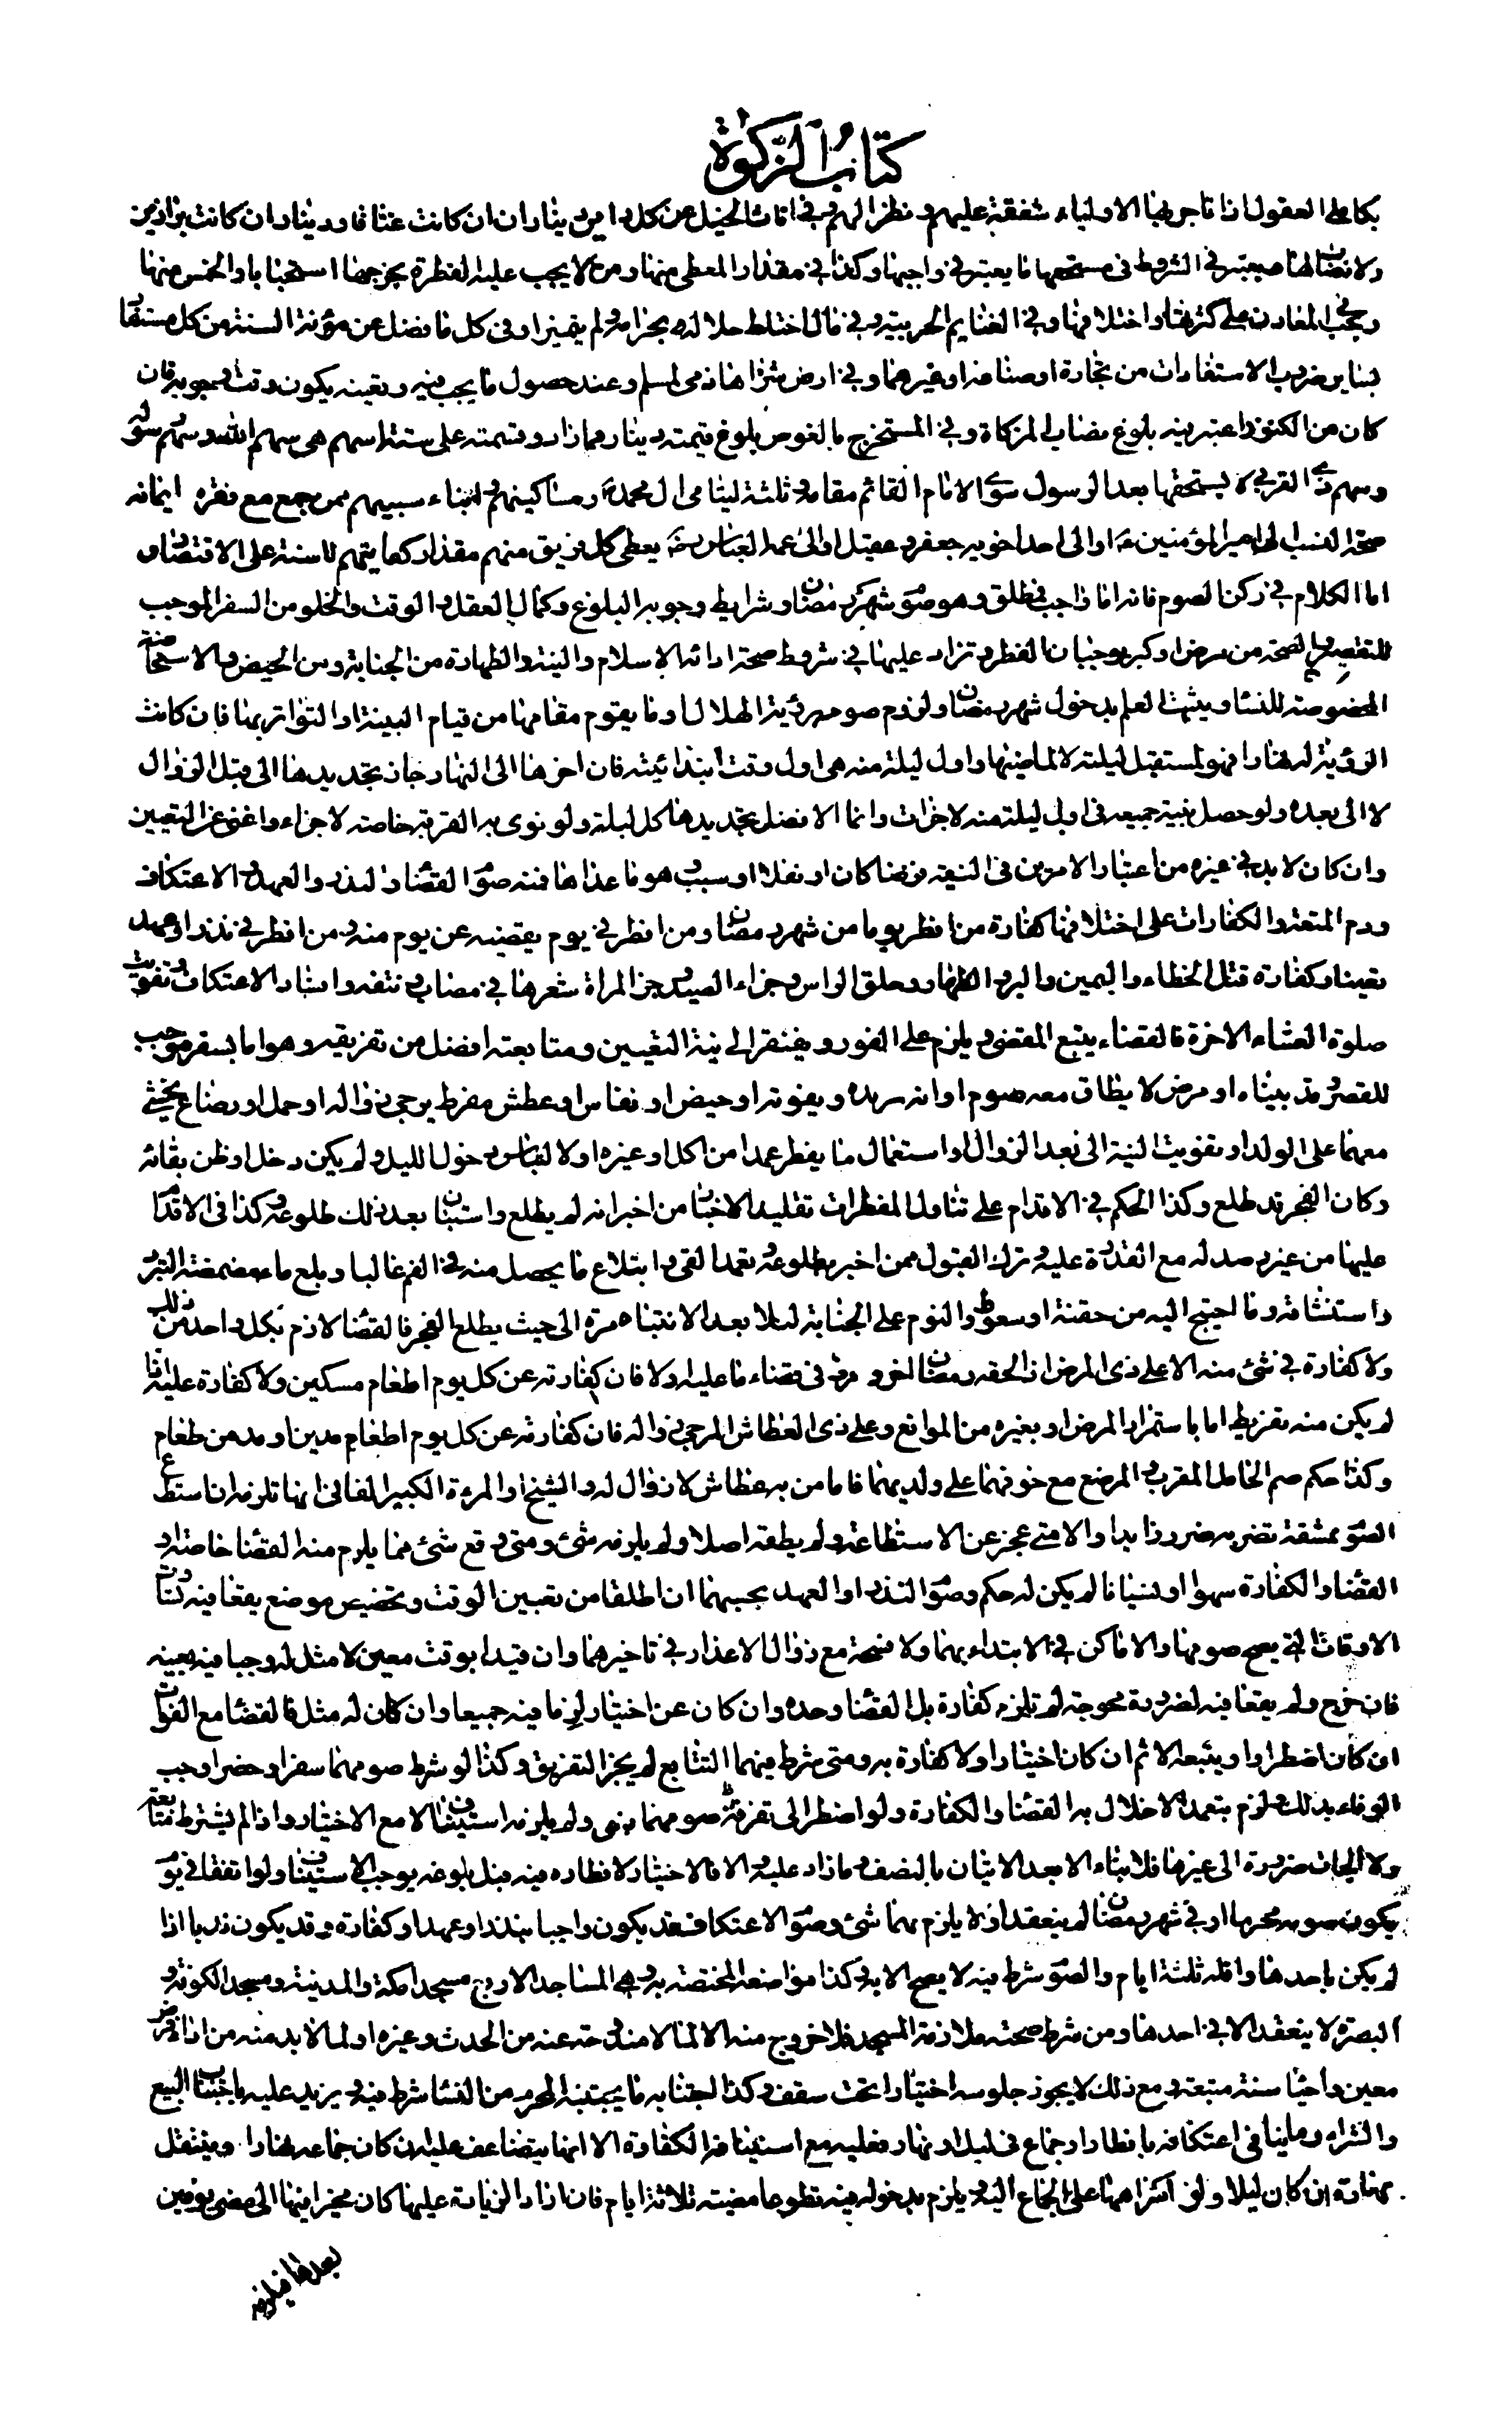 كتاب الزكوة
بكاملى العقول اذا تاجر بها الاولياء شفقة عليهم و نظرا لهم و فى اناث الخيل عن كل راس ديناران ان كانت عتاقا و دينار ان كانت براذين
ولا نصاب لها صيعتبر فى الشروط فى مستحقها ما يعتبر فى واجبها و كذا فى مقدار المعطى منها و من لا يجب عليه الفطرة يخرجها استحبابا و الخمس منها
و يجب فى المعادن على كثرتها و اختلافها و فى الغنايم الحربية و فى مال اختلط حلاله بحرامه و لم يتميزا و فى كل ما فضل عن مؤنة السنة من كل مستفاد
بساير ضروب الاستفادات من تجارة او صناعة او غيرهما و فى ارض شراها ذمى من مسلم و عند حصول ما يجب فيه و تعينه يكون وقت وجوبه فان
كان من الكنوز اعتبر فيه بلوغ نصاب الزكاة و فى المستخرج بالغوص بلوغ قيمته دينار فما زاد و قسمته على ستة اسهم هى سهم الله و سهم رسوله
و سهم ذى القربى لا يستحقها بعد الرسول سوى الامام القائم مقامه و ثلثة ليتامى ال محمد و مساكينهم و ابناء سبيلهم ممن جمع مع فقره ايمانه
صحة النسب الى امير المؤمنين ع او الى احد اخويه جعفر و عقيل او الى عمه العباس يعطى كل فريق منهم مقدار كفايتهم للسنة على الاقتصاد و
اما الكلام فى ركن الصوم فانه اما واجب مطلق و هو صوم شهر رمضان و شرايط وجوبه البلوغ و كمال العقل و الوقت و الخلو من السفر الموجب
للتقصير و الصحة من مرض او كبر يوجبان الفطر و تزاد عليها فى شروط صحة ادائه الاسلام و النية و الطهارة من الجنابة و من الحيض و الاستحاضة
المخصوصة للنساء و يثبت العلم بدخول شهر رمضان و لزم صومه رؤية الهلال او ما يقوم مقامها من قيام البينة او التواتر بها فان كانت
الرؤية له نهارا فهو لمستقبل ليلته لا لماضيها و اول ليلة منه هى اول وقت ابتداء نيته فان اخرها الى النهار جاز تجديدها الى قبل الزوال
لا الى بعده و لو حصل بنية جميعه فى اول ليلة منه لاجزات و انما الافضل تجديدها كل ليلة و لو نوى به القربة خاصة لاجزاء و اغنى عن التعيين
و ان كان لا بد فى غيره من اعتبار الامرين فى النية فرضا كان او نفلا او سبب و هو ما عدا هاه فمنه صوم القضاء و النذر و العهد و الاعتكاف
و دم المتعة و الكفارات على اختلافها كفارة من افطر يوما من شهر رمضان و من افطر فى يوم يقضيه عن يوم منه و من افطر فى نذر او عهد
تعينا و كفارة قتل الخطاء و اليمين و البر و الظهار و حلق الراس و جزاء الصيد و جز المراة شعرها فى مصاب و نتفه و افساد الاعتكاف و تفويت
صلوة العشاء الاخرة فالقضاء يتبع المقضى و يلزم على الفور و يفتقر الى نية التعيين و متابعته افضل من تفريقه و هو اما بسفر موجب
للقصر قد بيناه او مرض لا يطاق معه صوم او انه يزيده و يقويه او حيض او نفاس او عطش مفرط يرجى زواله او حمل او رضاع يخشى
معهما على الولد او تفويت النية الى بعد الزوال او استعمال ما يفطر عمدا من اكل او غيره او لالتباس دخول الليل و لم يكن دخل او ظن بقائه
و كان الفجر قد طلع و كذا الحكم فى الاقدام على تناول المفطرات تقليد الاخبار من اخبر انه لم يطلع و استبان بعد ذلك طلوعه و كذا فى الاقدام
عليها من غير رصد له مع القدرة عليه و ترك القبول ممن اخبر بطلوعه و تعمد القى و ابتلاع ما يحصل منه فى الفم غالبا و بلع ماء مضمضة التبرد
و استنشاقه و ما احتيج اليه من حقنة او سعوط و النوم على الجنابة ليلا بعد الانتباه مرة الى حيث يطلع الفجر فالقضاء لازم بكل واحد من ذلك
ولا كفارة فى شئ منه الا على ذى المرض اذا لحقه رمضان اخر و فرط فى قضاء ما عليه اولا فان كفارته عن كل يوم اطعام مسكين و لا كفارة عليه اذا
لم يكن منه تفريط اما باستمرار المرض او بغيره من الموانع و على ذى العطاش المرجى زواله فان كفارته عن كل يوم اطعام مدين او مد من طعام
و كذا حكم صم الحامل المقرب و المرضع مع خوفهما على ولديهما فاما من به عطاش لا زوال له و الشيخ او المرءة الكبير الفانى انما تلزمه ان استطاع
الصوم بمشقة تضر به ضررا زايدا و الا متى عجز عن الاستطاعة و لم يطقه اصلا و لم يلزمه شئ و متى وقع شئ مما يلزم منه القضاء خاصة او
القضاء و الكفارة سهوا او نسيانا لم يكن له حكم و صوم النذر او العهد بحسبهما ان اطلقا من تعيين الوقت و تخصيص موضع يقعا فيه ساير
الاوقات التى يصح صومها و الاماكن فى الابتداء بهما ولا فسحة مع زوال الاعذار فى تاخيرهما و ان قيدا بوقت معين لا مثل له وجبا فيه بعينه
فان خرج و لم يقعا فيه لضرورة محوجة لم تلزم كفارة بل القضاء وحده و ان كان عن اختيار لزما فيه جميعا و ان كان له مثل فالقضاء مع الفوات
ان كان اضطرارا و يتبعه الاثم ان كان اختيارا و لا كفارة به و متى شرط فيهما التتابع لم يجز التفريق و كذا لو شرط صومهما سفرا و حضرا وجب
الوفاء بذلك و لزم بتعمد الاخلال به القضاء و الكفارة و لو اضطر الى تفرقة صومهما بنى و لم يلزمه استيناف الا مع الاختيار و اذا لم يشترط متابعة
ولا الجات ضرورة الى غيرها فلا بناء الا بعد الاتيان بالنصف و ما زاد عليه و الا فالاختيار لافطاره فيه قبل بلوغه يوجب الاستيناف و لو اتفقا فى يوم
يكون صومه محرما او فى شهر رمضان لم ينعقدا و لا يلزم بهما شئ و صوم الاعتكاف فقد يكون واجبا بنذر او عهد او كفارة و قد يكون ندبا اذا
لم يكن باحدها و اقله ثلثة ايام و الصوم شرط فيه لا يصح الا به و كذا مواضعه المختصة به و هى المساجد الاربع مسجدا مكة و المدينة و مسجد الكوفة و
البصرة لا ينعقد الا فى احدها و من شرط صحته ملازمة المسجد فلا خروج منه الا لما لا مندوحة عنه من الحدث و غيره او لما لا بد منه من اداء فرض
معين و احياء سنة متبعة و مع ذلك لا يجوز جلوسه اختيارا تحت سقف و كذا اجتنابه ما يجتنبه المحرم من النساء شرط فيه و يزيد عليه باجتناب البيع
و الشراء و ما ينافى اعتكافه بافطار او جماع فى ليل او نهار فعليه مع استينافه الكفارة الا انها يتضاعف عليه ان كان جماعه نهارا و ينتقل
بهاذه ان كان ليلا و لو اكرهها على الجماع اليه و يلزم بدخوله فيه تطوعا مضيته ثلاثة ايام فان اراد الزيادة عليها كان مخيرا فيها الى مضى يومين
بعدها فيلزم